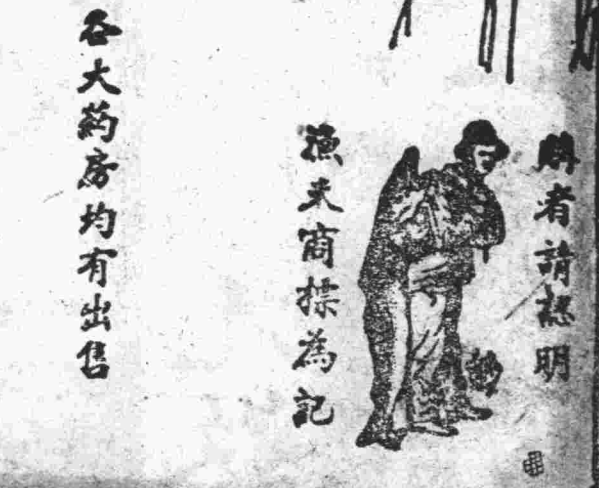 購者請認明
漁夫商標為記
各大药房均有出售